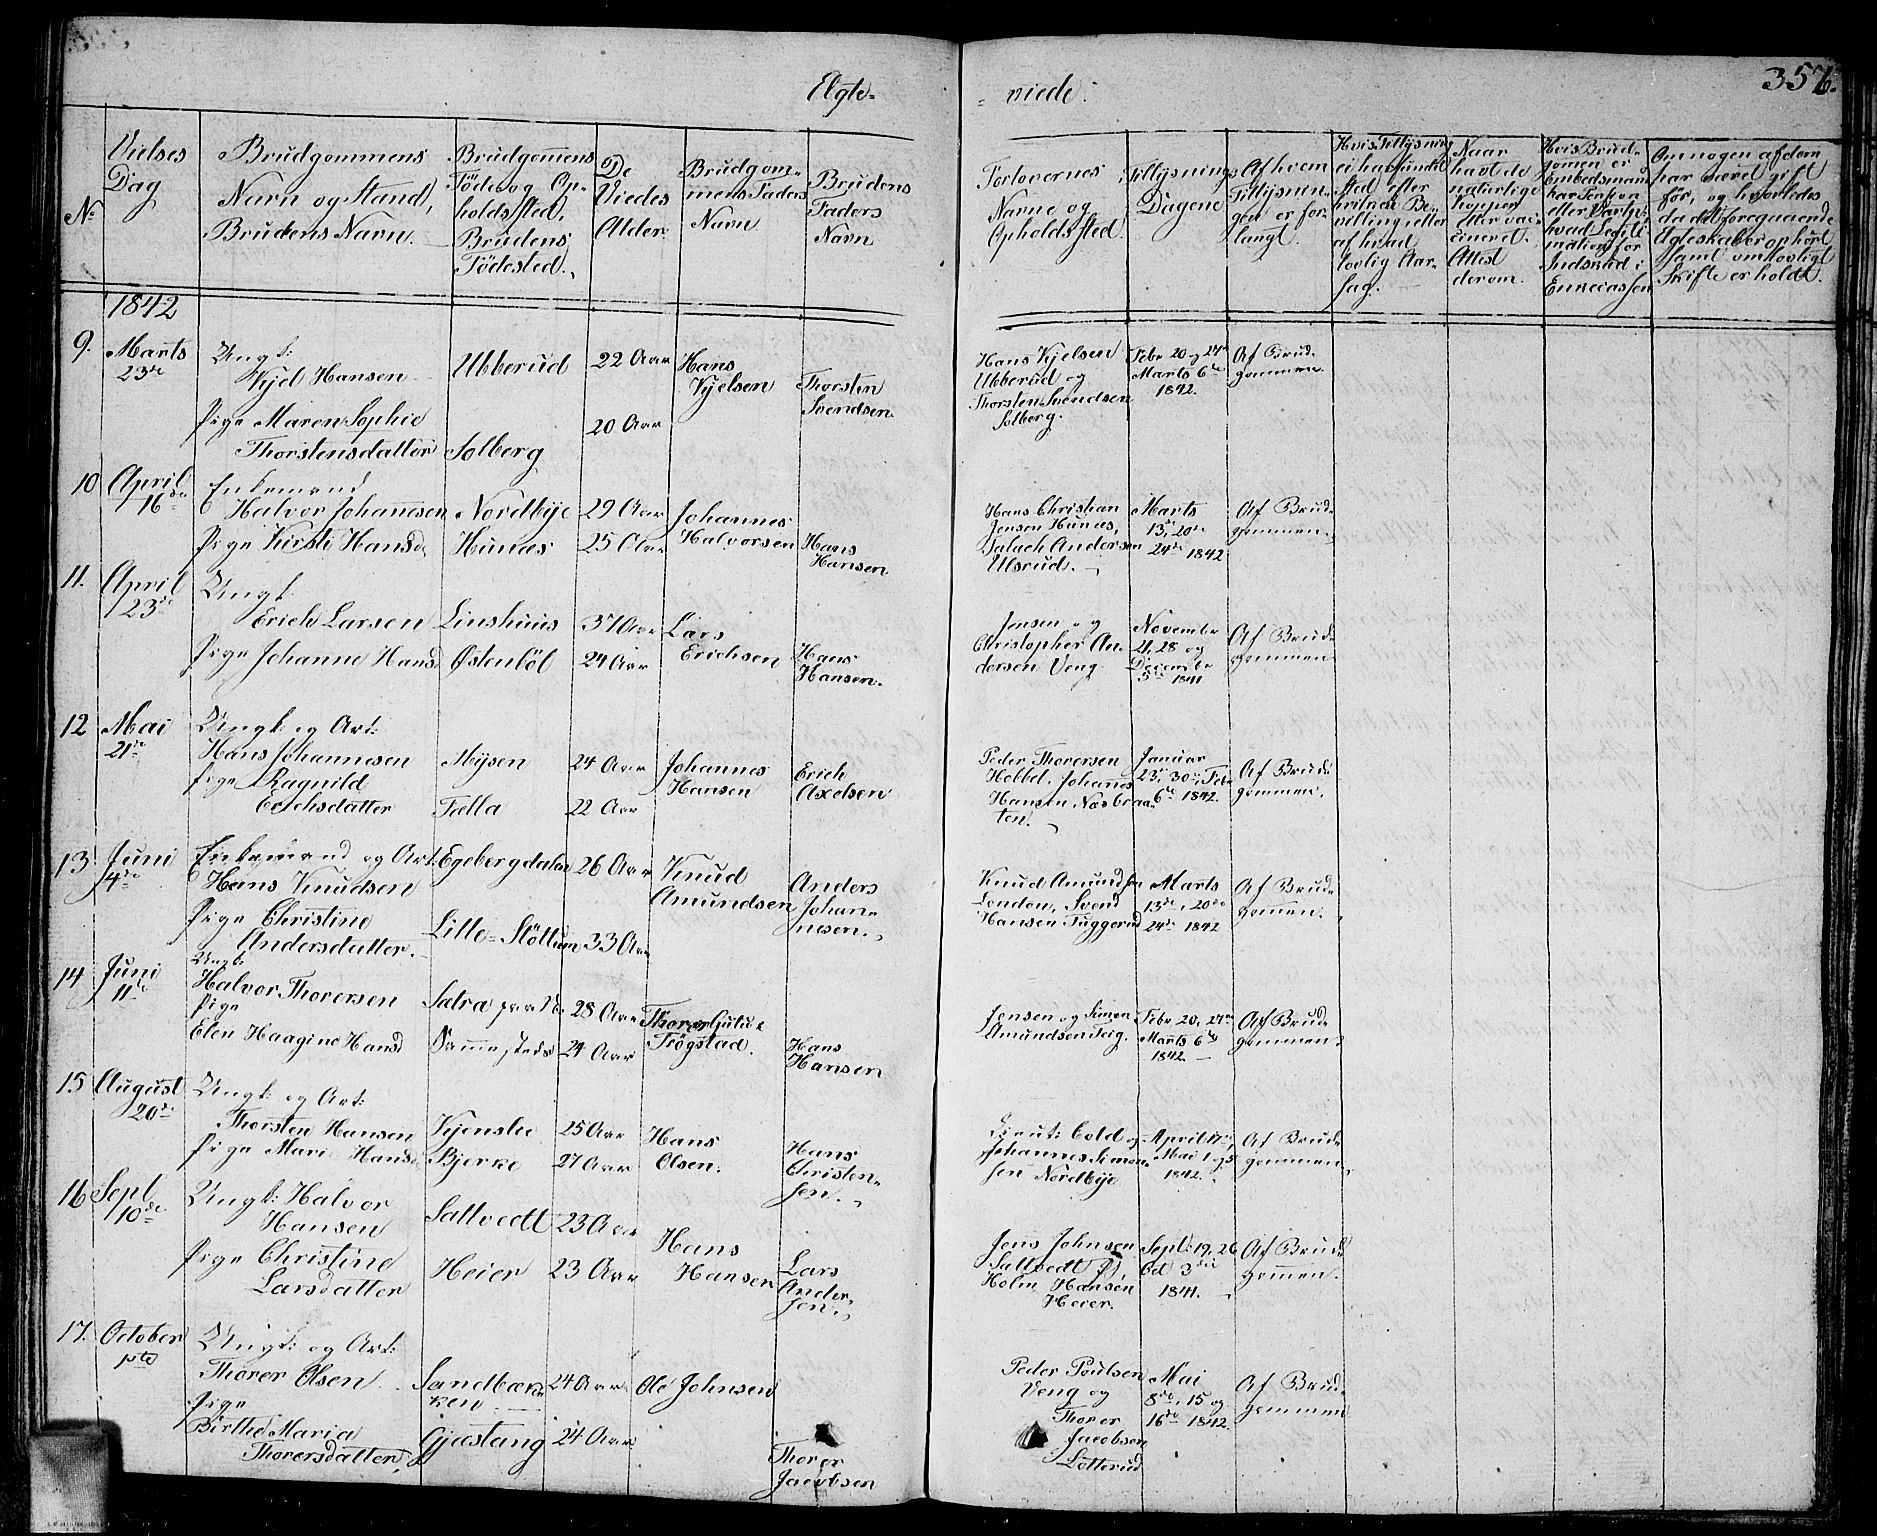 Elgte= = viede.
357.
No
Vielses Dag
Brudgommens Navn og Stand, Brudens Navn.
Brudgommens Föde og Opholdssted, Brudens Födested.
De Viedes Alder
Brudgommens Faders Navn
Brudens Faders Navn
Forlovernes Navne og Opholdssted
Tillysnings Dagene
Af hvem Tillysningen er forlangt.
Hvis Tillysning ei har fundet Sted efter hvilken Bevilling eller af hvad lovlig Aarsag.
Naar havt de naturlige Kopper eller vaccineret. Attest derom.
Om nogen af dem har været gift för, og hvorledes det foregaaende Egteskab er ophört samt om lovligt Skifte er holdt.
1842
9. Marts 23de
Ungk:
Kjel Hansen
Ubberud
22 Aar
Hans Kjelsen
Pige Maren Sophie
Thorstensdatter
Solberg
20 Aar
Thorsten Svendsen
Hans Kjelsen
Ubberud og
Thorsten Svendsen
Solberg.
Febr 20 og 27de
Marts 6te
1842.
Af Brudgommen
10 April 16de
Enkemand
Halvor Johannesen
Nordbye
29 Aar
Johannes Halvorsen
Pige Kirsti Hansd
Hunæs
25 Aar
Hans Hansen
Hans Christian
Jensen Hunæs,
Andersen
Ulsrud.
Marts
13de, 20de
24de 1842
Af Brudgommen
11. April 23de
Ungk
Erich Larsen
Linshuus
37 Aar
Lars Erichsen
Pige Johanne Hansd
Østenböl
24 Aar
Hans Hansen.
Jensen og
Christopher Andersen Veng
November
21, 28 og
December
5te 1841
Af Brudgommen
12 Mai 21de
Ungk: og Art:
Hans Johannesen
Mysen
24 Aar
Johannes Hansen
Pige Ragnild
Erichsdatter
Falla
22 Aar
Erich Axelsen
Peder Thorersen
Hobbel, Johannes
Hansen Næsbraaten.
Januar
23de, 30te, Feb
6te 1842.
Af Brudgommen.
13 Juni 4de
Enkemand og Art:
Hans Knudsen
Egebergdalen
26 Aar
Knud Amundsen
Pige Christine
Andersdatter.
Lille-Slöttum
33 Aar
Anders Johannesen.
Knud Amundsen
London, Svend
Hansen Tuggerud
Marts
13de, 20de
24de 1842
Af Brudgommen.
14 Juni 11te
Ungk:
Halvor Thorersen
28 Aar
Pige
Elen Haagine Hansd
Sammesteds
24 Aar
Trögstad.
Hans Hansen
Jensen og Simen
Amundsen Teig.
Febr 20, 27de
Marts 6te
1842.
Af Brudgommen.
15 August 20de
Ungk: og Art:
Thorsten Hansen
Kjenslie
25 Aar
Hans Olsen.
Pige Mari Hansd
Bjerke
27 Aar
Hans Christensen.
Lieut: Cold og
Johannes Simensen Nordbye
April 17de
Mai 1 og 5
1842.
Af Brudgommen.
16 Sept 10de
Ungk: Halvor
Hansen
Saltvedt
23 Aar
Hans Hansen
Pige Christine
Larsdatter
Heier
23 Aar
Lars Andersen.
Jens Johnsen
Saltvedt
Holm Hansen
Heier.
Sept: 19, 26
Oct 3die
1841.
Af Brudgommen.
17. October 1ste
Ungk: og Art:
Thorer Olsen
Sandbækken
24 Aar
Ole Johnsen
Pige
Birthe Maria
Thorersdatter
Gjæstang
24 Aar
Thorer Jacobsen
Peder Poulsen
Veng og
Thorer
Jacobsen
Lötterud
Mai
8de, 15 og
16de 1842.
Af Brudgommen